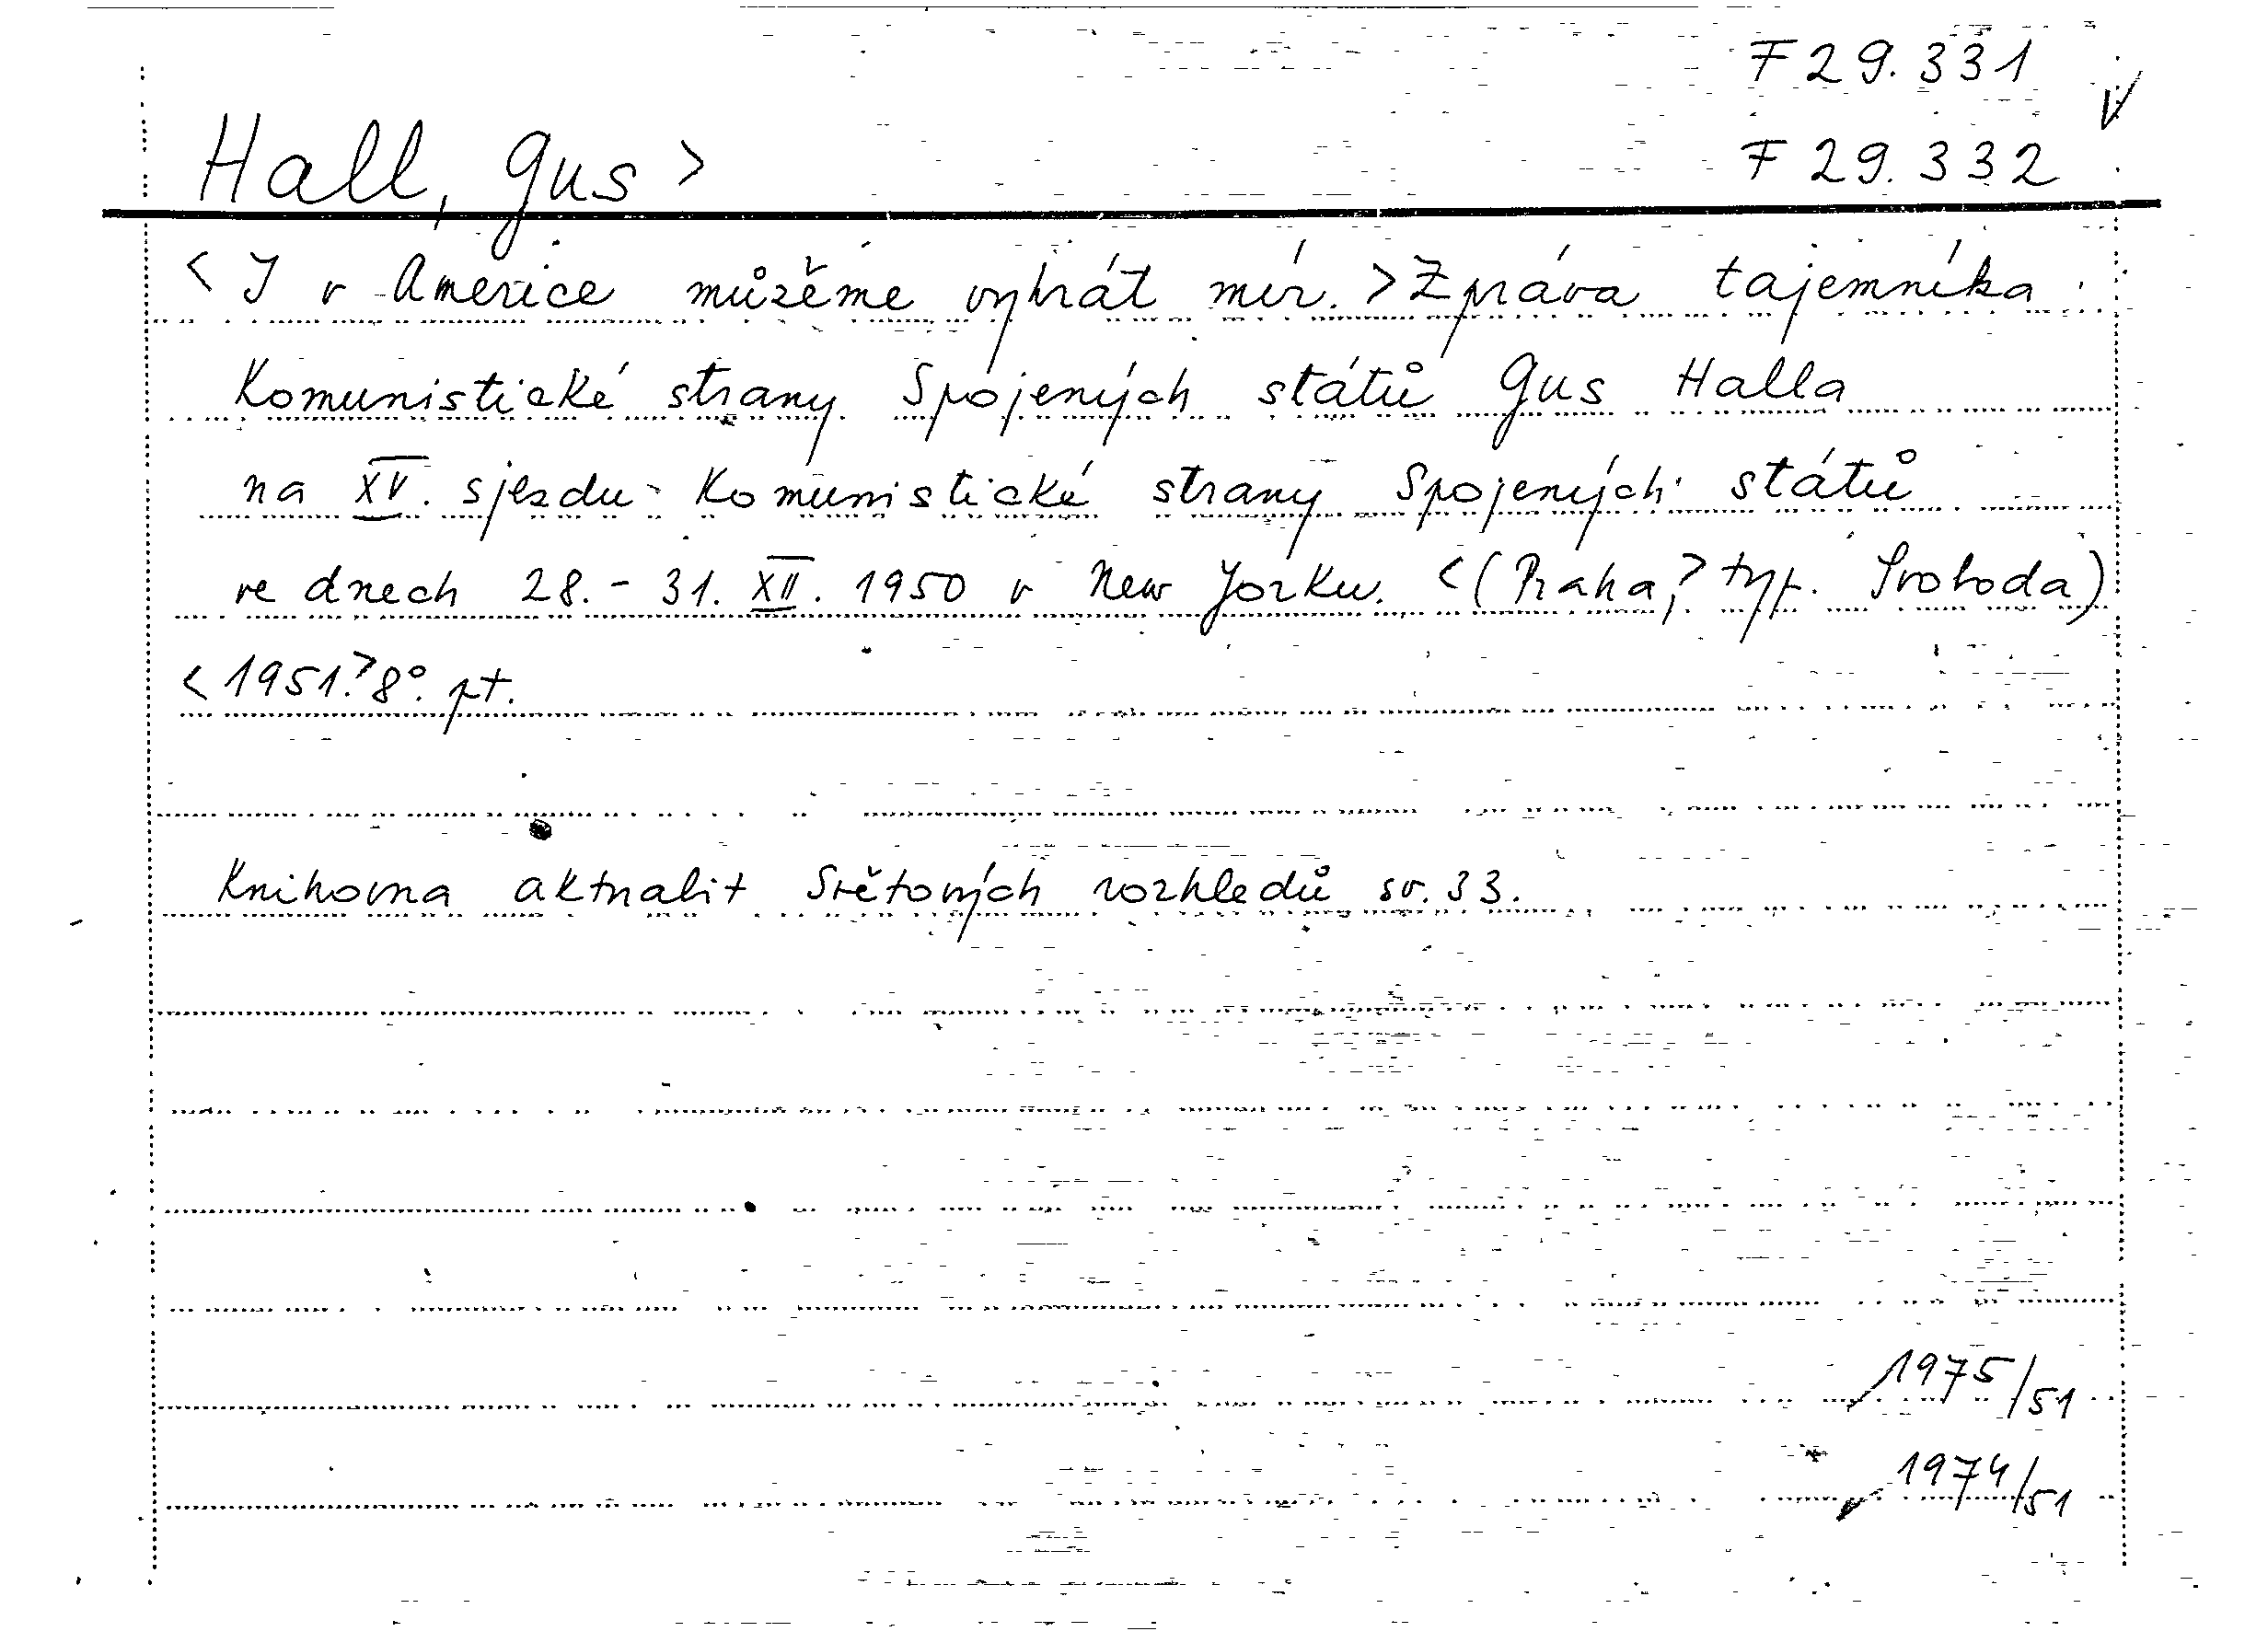 F 29.331
V
Hall, Gus >
F 29.332
< I v Americe můžeme vyhrát mír. > Zpráva tajemníka
Komunistické strany Spojených států Gus Halla
na XV. sjezdu Komunistické strany Spojených států
ve dnech 28. - 31. XII. 1950 v New Yorku. < (Praha,> typ. Svoboda)
< 1951.> 8°. pt.
Knihovna aktualit Světových rozhledů sv. 33.
1975/51
1974/51